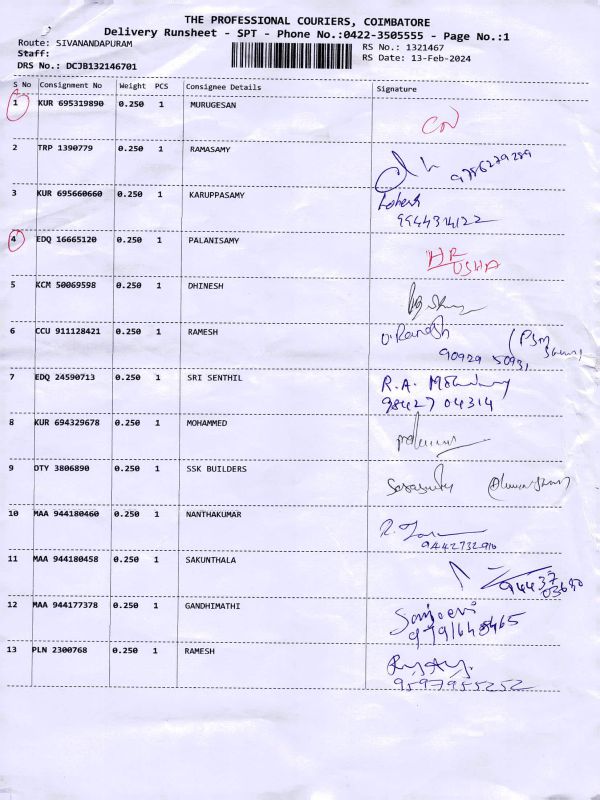 THE PROFESSIONAL COURIERS, COIMBATORE
Delivery Runsheet - SPT - Phone No.:0422-3505555 - Page No.:1
Route: SIVANANDAPURAM RS No.: 1321467
Staff: RS Date: 13-Feb-2024
DRS No.: DCJB132146701
S No Consignment No Weight PCS Consignee Details Signature
1 KUR 695319890 0.250 1 MURUGESAN
2 TRP 1390779 0.250 1 RAMASAMY
9786279289
3 KUR 695660660 0.250 1 KARUPPASAMY
9944314122
4 EDQ 16665120 0.250 1 PALANISAMY HR
USHA
5 KCM 50069598 0.250 1 DHINESH
6 CCU 911128421 0.250 1 RAMESH
90929 50931
7 EDQ 24590713 0.250 1 SRI SENTHIL R.A.
98427 04314
8 KUR 694329678 0.250 1 MOHAMMED
9 OTY 3806890 0.250 1 SSK BUILDERS
10 MAA 944180460 0.250 1 NANTHAKUMAR
11 MAA 944180458 0.250 1 SAKUNTHALA
12 MAA 944177378 0.250 1 GANDHIMATHI
13 PLN 2300768 0.250 1 RAMESH
9597955252